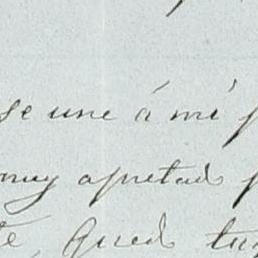 se une á mi
muy apretad
te, Qued tuy